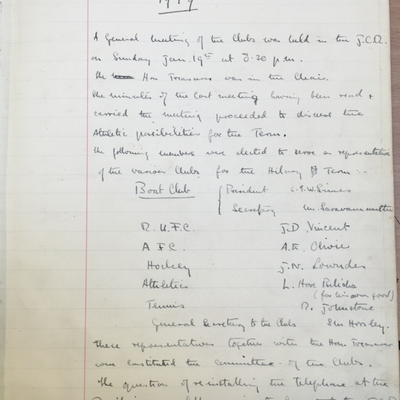 1919
A General Meeting of the Clubs was held in the J.C.R.
on Sunday Jan. 19th at 8.20 p.m.
The Hon Treasurer was in the Chair.
The minutes of the last meeting having been read &
carried the meeting proceeded to discuss the
Athletic possibilities for the Term.
The following members were elected to serve as representatives
of the various Clubs for the Hilary Term :-
Boat Club { President
Secretary
R.U.F.C. J.D Vincent
A F.C. A.E.
Hockey J.N. Lowndes
Athletics L. Hore
(for his own good)
Tennis Johnstone
General Secretary to the Clubs Horsley.
These representatives together with the Hon Treasurer
now constituted the Committee of the Clubs.
The question of re-installing the Telephone at the